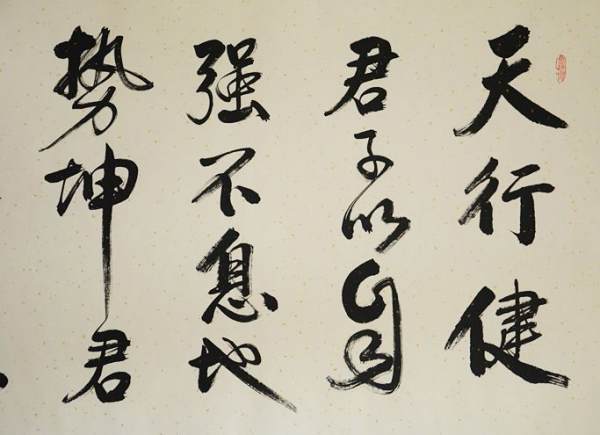 天行健
君子以自
强不息地
势坤君